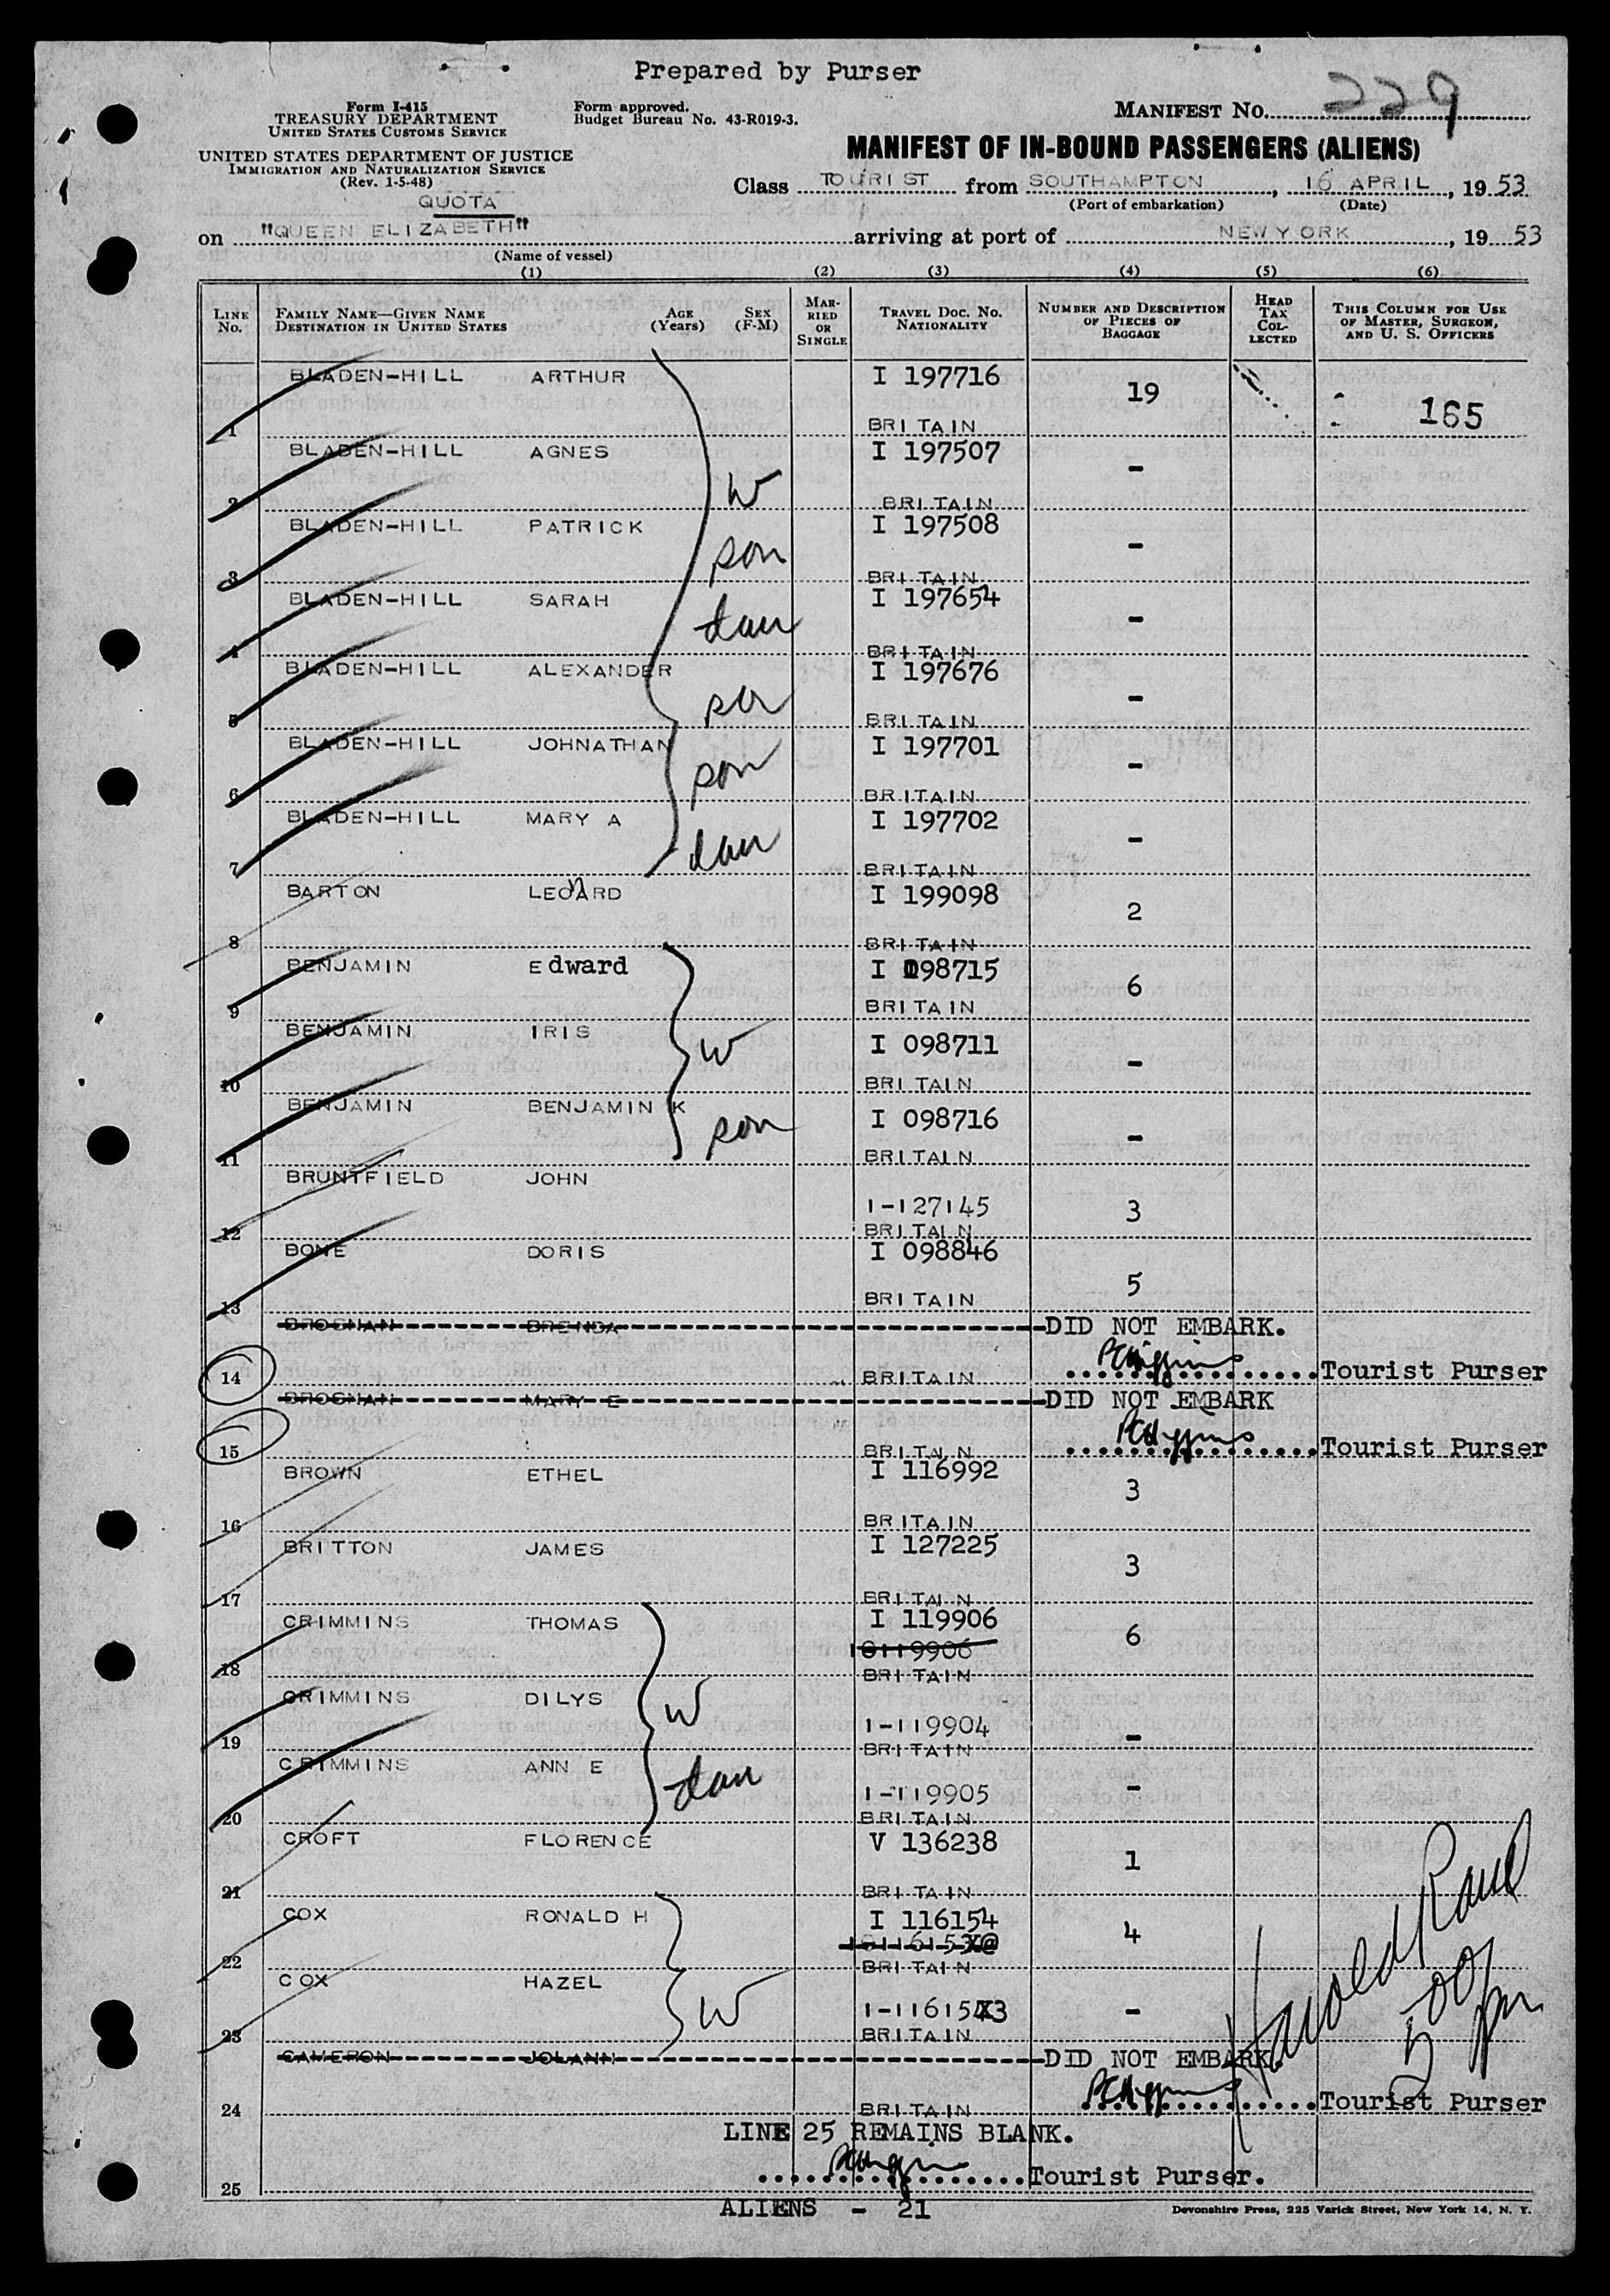 Prepared by Purser
Form I-415
TREASURY DEPARTMENT
UNITED STATES CUSTOMS SERVICE
Form approved.
Budget Bureau No. 43-R019-3.
MANIFEST No. 229
UNITED STATES DEPARTMENT OF JUSTICE
IMMIGRATION AND NATURALIZATION SERVICE
(Rev. 1-5-48)
MANIFEST OF IN-BOUND PASSENGERS (ALIENS)
QUOTA
Class TOURIST from SOUTHAMPTON, 16 APRIL, 1953
(Port of embarkation) (Date)
on "QUEEN ELIZABETH" arriving at port of NEW YORK, 1953
(Name of vessel)
(1) (2) (3) (4) (5) (6)
LINE No. FAMILY NAME—GIVEN NAME DESTINATION IN UNITED STATES AGE (Years) SEX (F-M) MARRIED OR SINGLE TRAVEL DOC. No. NATIONALITY NUMBER AND DESCRIPTION OF PIECES OF BAGGAGE HEAD TAX COLLECTED THIS COLUMN FOR USE OF MASTER, SURGEON, AND U. S. OFFICERS
BLADEN-HILL ARTHUR I 197716 19 165
1 BRITAIN
BLADEN-HILL AGNES W I 197507 -
2 BRITAIN
BLADEN-HILL PATRICK son I 197508 -
3 BRITAIN
BLADEN-HILL SARAH dau I 197654 -
4 BRITAIN
BLADEN-HILL ALEXANDER son I 197676 -
5 BRITAIN
BLADEN-HILL JOHNATHAN son I 197701 -
6 BRITAIN
BLADEN-HILL MARY A dau I 197702 -
7 BRITAIN
BARTON LEONARD I 199098 2
8 BRITAIN
BENJAMIN Edward I 098715 6
9 BRITAIN
BENJAMIN IRIS W I 098711 -
10 BRITAIN
BENJAMIN BENJAMIN K son I 098716 -
11 BRITAIN
BRUNTFIELD JOHN
I-127145 3
12 BRITAIN
BONE DORIS I 098846 5
13 BRITAIN
BROSNAN BRENDA DID NOT EMBARK.
14 BRITAIN PCHiggins Tourist Purser
BROSNAN MARY E DID NOT EMBARK
15 BRITAIN PCHiggins Tourist Purser
BROWN ETHEL I 116992 3
16 BRITAIN
BRITTON JAMES I 127225 3
17 BRITAIN
CRIMMINS THOMAS I 119906 6
I0119906
18 BRITAIN
CRIMMINS DILYS W
I-119904 -
19 BRITAIN
CRIMMINS ANN E dau
I-119905 -
20 BRITAIN
CROFT FLORENCE V 136238 1
21 BRITAIN
COX RONALD H I 116154 4
22 BRITAIN
COX HAZEL W
I-116153 -
23 BRITAIN
CAMERON JOLANN DID NOT EMBARK.
24 BRITAIN PCHiggins Tourist Purser
LINE 25 REMAINS BLANK.
25 PCHiggins Tourist Purser.
ALIENS - 21
Devonshire Press, 225 Varick Street, New York 14, N. Y.